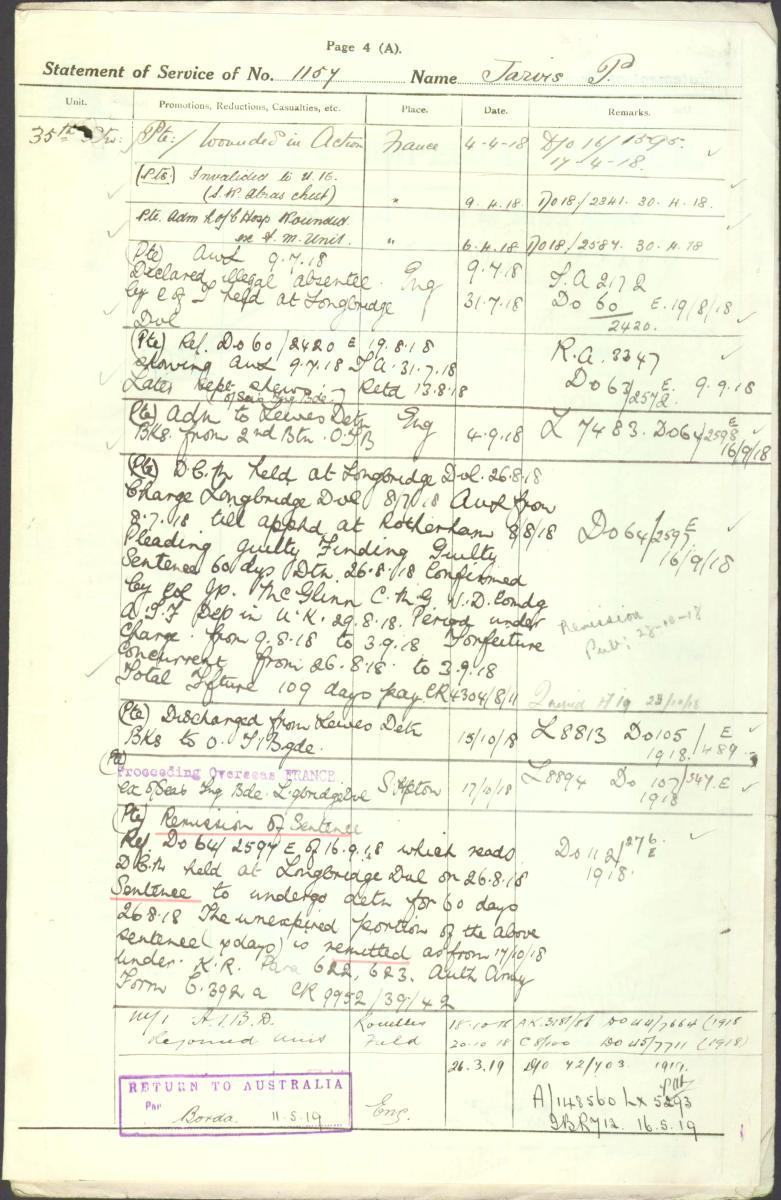 Page 4 (A).
Statement of Service of No. 1157 Name Jarvis P.
Unit. Promotions, Reductions, Casualties, etc. Place. Date. Remarks.
35th Pte/ Wounded in Action France 4-4-18 D/o 16/1595.
17-4-18.
(Pte.) Invalided to U.K.
(S.W. Abras chest) " 9.4.18 Do18/2341. 30.4.18.
Pte. Adm Hosp Wounded
" 6.4.18 Do18/2587. 30.4.18
(Pte) AWL 9.7.18 9.7.18 I.A 2172
Declared illegal absentee Eng
by C of I held at Longbridge 31.7.18 Do 60 E. 19/8/18
Dvl 2420.
(Pte) Ref. Do 60/2420 E 19.8.18 R.A. 3347
showing AWL 9.7.18 I.A. 31.7.18
Later rept shews:- Retd 13.8.18 Do 63/2572 E. 9.9.18
of Seas Trg Bde.
(Pte) Adm to Lewes Detn Eng L 7483. Do64/2598 E
Bks. from 2nd Btn. O.T.B 4.9.18 16/9/18
(Pte) D.C.M held at Longbridge Dvl. 26.8.18
Charge Longbridge Dvl 8/7/18 AWL from
8.7.18 till apphd at Rotherham 8/8/18 Do64/2597 E
Pleading guilty Finding Guilty 16/9/18
Sentence 60 dys Dtn. 26.8.18 Confirmed
by Col Jp. McGlinn C.M.G. V.D. Comdg
A.I.F Dep in U.K. 29.8.18. Period under Remission
Charge. from 9.8.18 to 3.9.18 Forfeiture Pub: 23-10-18
Concurrent from 26.8.18. to 3.9.18
Total Ffture 109 days pay CR4304/8/11 23/10/18
(Pte) Discharged from Lewes Detn L8813 Do105/489 E
Bks to O. T. Bgde. 15/10/18 1918.
(Pte)
Proceeding Overseas FRANCE L8894 Do 107/347. E
ex O/Seas Trg Bde. L.gbridge Dvl S'Hpton 17/10/18 1918
(Pte) Remission of Sentence
Ref. Do 64/2597 E of 16.9.18 which reads Do 112/276 E
D.C.M held at Longbridge Dvl on 26.8.18 1918.
Sentence to undergo detn for 60 days
26.8.18 The unexpired portion of the above
sentence (x days) is remitted as from 17/10/18
under. K.R. Para 622, 623. Auth Army
Form C.392a CR 9952/39/42
M/I A.I.B.D. Rouelles 18-10-18 AK.3181/86 Do44/7664 (1918
Rejoined Unit Field 20.10.18 C8/100 Do45/7711 (1918)
26.3.19 D/o 42/403 1919.
RETURN TO AUSTRALIA
Per
Borda. 11.5.19 Eng. A/148560 Lx 5293
IBR712. 16.5.19